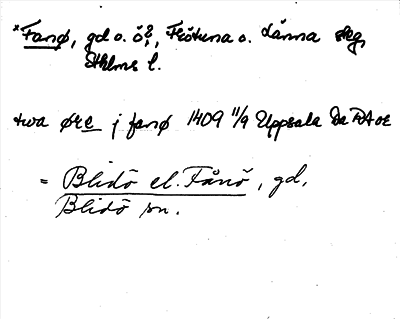 *Fanø, gd o. ö?, Frötuna o. Länna skg,
Sthlms l.
twa øre j fanø 1409 11/9 Uppsala Da RA oe
= Blidö el. Fånö, gd,
Blidö sn.